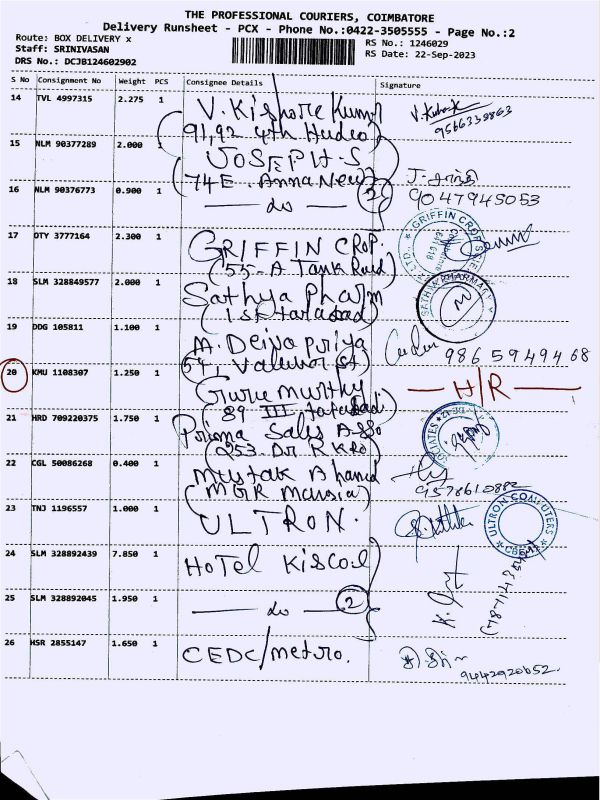 THE PROFESSIONAL COURIERS, COIMBATORE
Delivery Runsheet - PCX - Phone No.:0422-3505555 - Page No.:2
Route: BOX DELIVERY x
RS No.: 1246029
Staff: SRINIVASAN
RS Date: 22-Sep-2023
DRS No.: DCJB124602902
S No Consignment No Weight PCS Consignee Details Signature
14 TVL 4997315 2.275 1 V. Kishore Kumar
91,92 4th
9566339863
15 NLM 90377289 2.000 JOSEPH.S
74E. Anna New
16 NLM 90376773 0.900 1 do 2
9047945053
17 DTY 3777164 2.300 1 GRIFFIN CROP.
(55-A Tank Road
GRIFFIN
18 SLM 328849577 2.000 1 Sathya Pharm
SATHYA PHARMACY
19 DDG 105811 1.100 1 A. Deivapriya
54,
9865949468
20 KMU 1108307 1.250 1 Guru Murthy
(89 III
H/R
21 HRD 709220375 1.750 1 Prisma Sales Asso
(253 Dr R K Rd)
22 CGL 50086268 0.400 1 Mustak Ahamed
(MGR
9578610882
23 TNJ 1196557 1.000 1 ULTRON.
ULTRON COMPUTERS
24 SLM 328892439 7.850 1 HOTEL KISCOL
25 SLM 328892045 1.950 1 do 2
26 HSR 2855147 1.650 1 CEDC/metro.
9442920652.